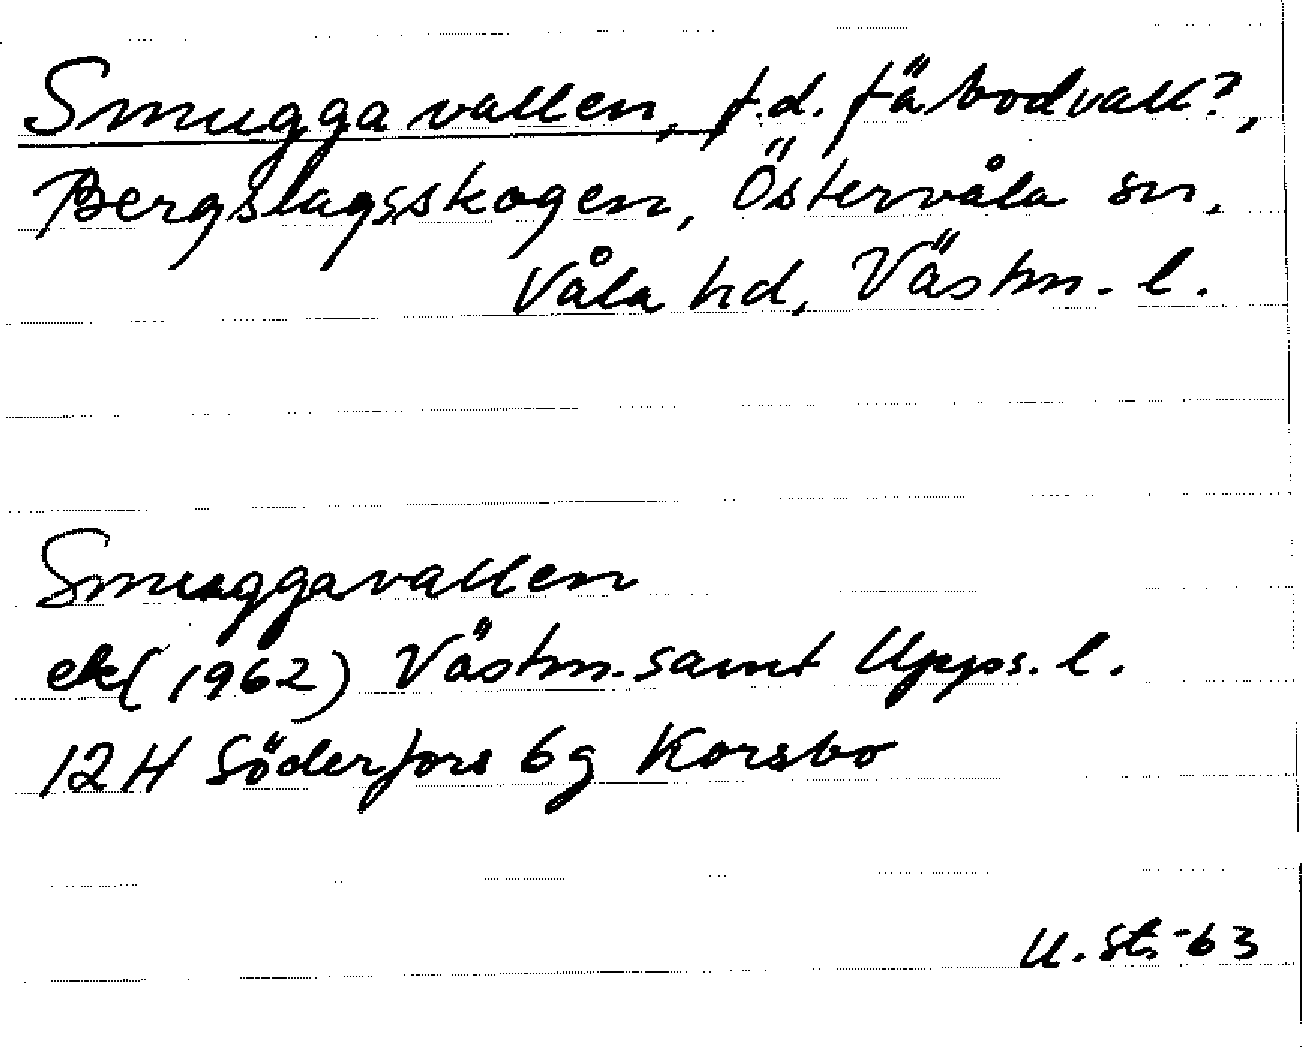 Smuggavallen, f.d. fäbodvall?,
Bergslagsskogen, Östervåla sn,
Våla hd, Västm. l.
Smuggavallen
ek (1962) Västm. samt Upps. l.
12 H Söderfors 6g Korsbo
U. St. -63